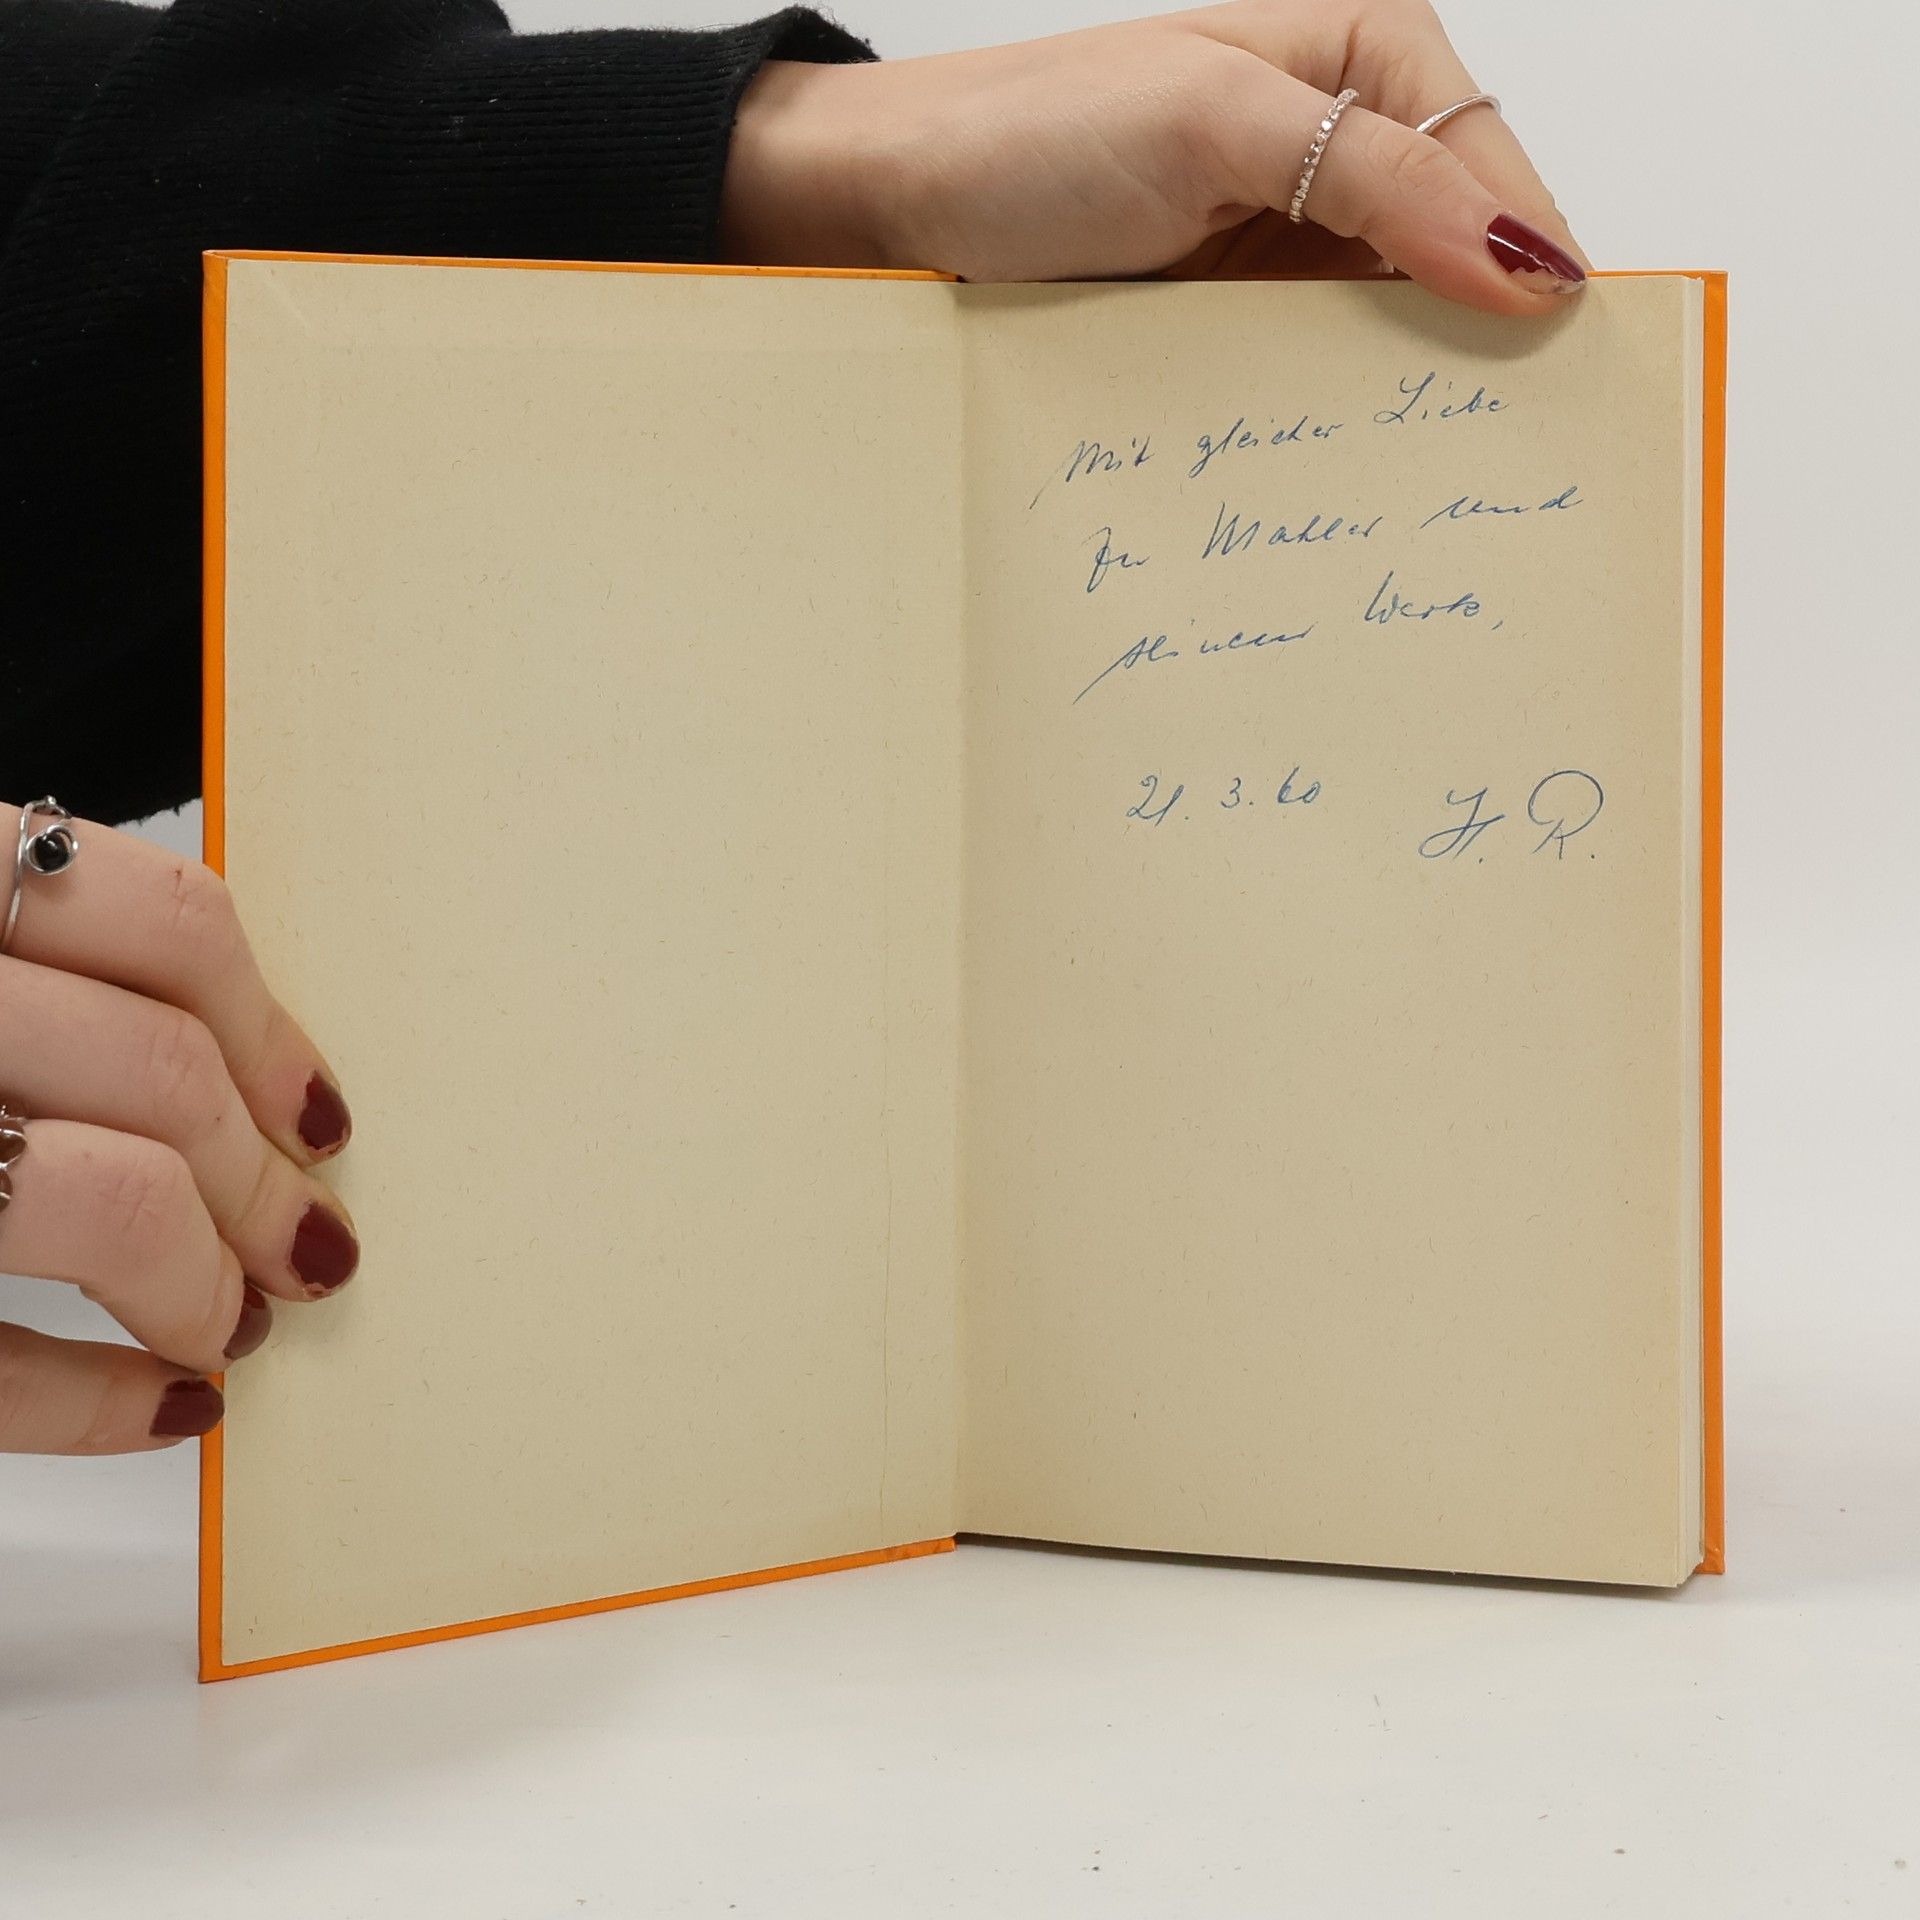 Mit gleicher Liebe
zu Mahler und
seinem Werk,
21. 3. 60 H. R.